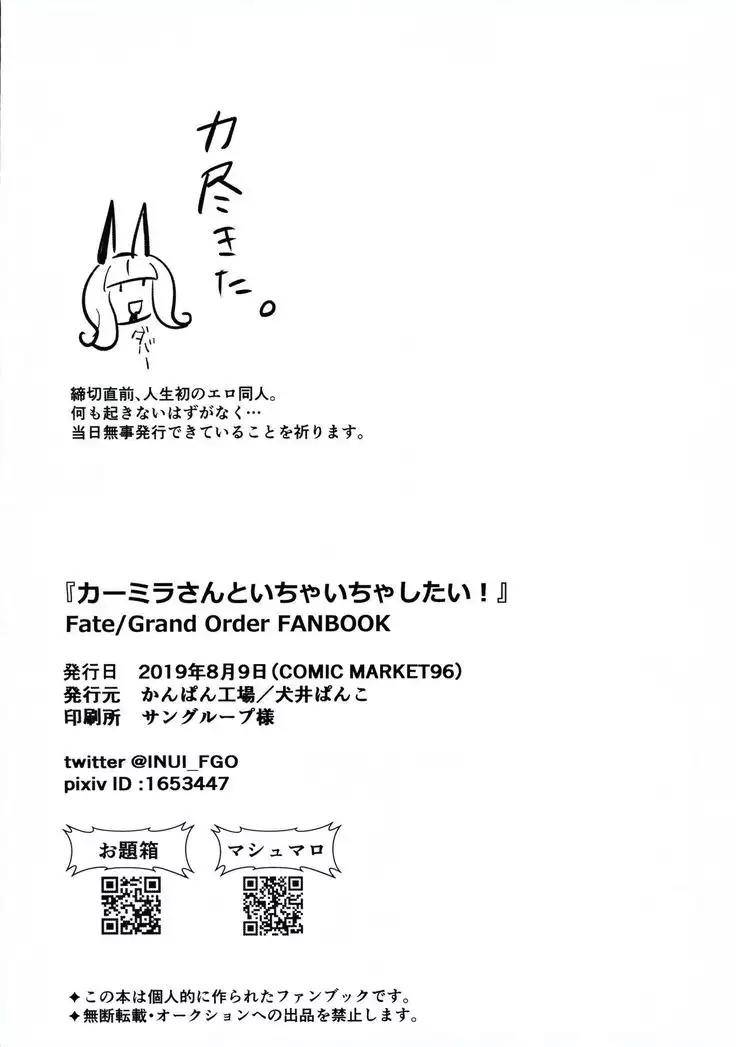 力尽きた。
ダバー
締切直前、人生初のエロ同人。
何も起きないはずがなく…
当日無事発行できていることを祈ります。
『カーミラさんといちゃいちゃしたい！』
Fate/Grand Order FANBOOK
発行日 2019年8月9日（COMIC MARKET96）
発行元 かんぱん工場／犬井ぱんこ
印刷所 サングループ様
twitter @INUI_FGO
pixiv ID :1653447
お題箱 マシュマロ
✦この本は個人的に作られたファンブックです。
✦無断転載・オークションへの出品を禁止します。